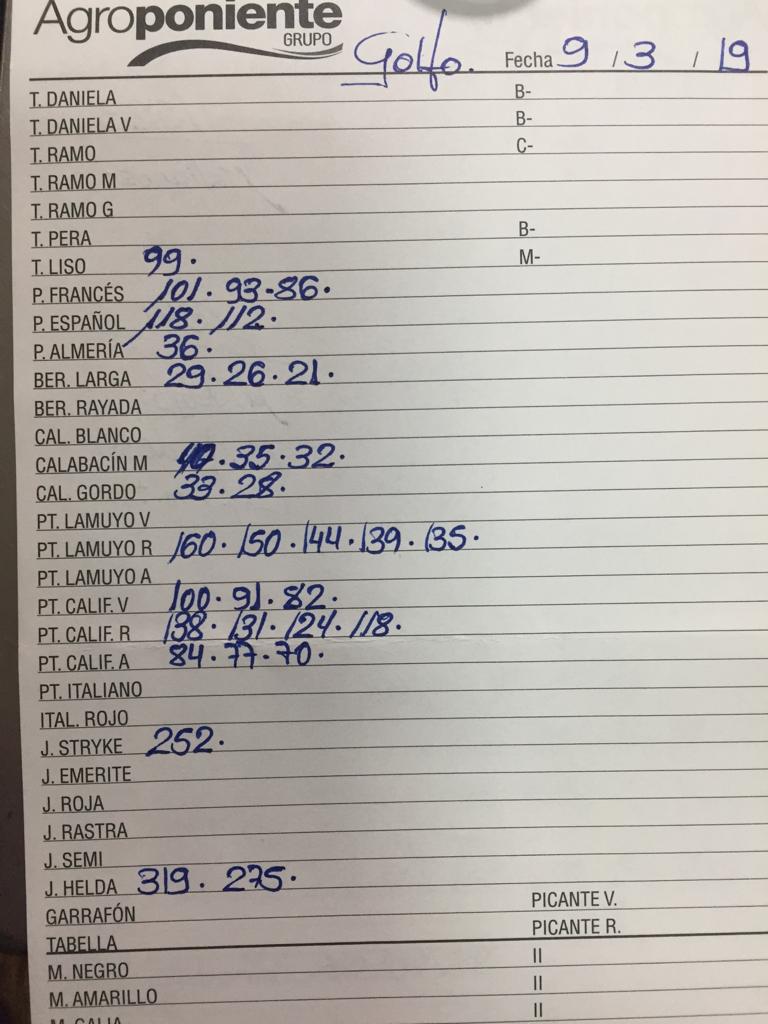 Agroponiente
GRUPO
Golfo. Fecha 9 / 3 / 19
T. DANIELA B-
T. DANIELA V B-
T. RAMO C-
T. RAMO M
T. RAMO G
T. PERA B-
T. LISO 99. M-
P. FRANCÉS 101. 93-86.
P. ESPAÑOL 118. 112.
P. ALMERÍA 36.
BER. LARGA 29.26.21.
BER. RAYADA
CAL. BLANCO
CALABACÍN M .35.32.
CAL. GORDO 33.28.
PT. LAMUYO V
PT. LAMUYO R 160. 150. 144. 139. 135.
PT. LAMUYO A
PT. CALIF. V 100. 91. 82.
PT. CALIF. R 138. 131. 124. 118.
PT. CALIF. A 84.77.70.
PT. ITALIANO
ITAL. ROJO
J. STRYKE 252.
J. EMERITE
J. ROJA
J. RASTRA
J. SEMI
J. HELDA 319. 275.
GARRAFÓN PICANTE V.
TABELLA PICANTE R.
M. NEGRO II
M. AMARILLO II
M. GALIA II